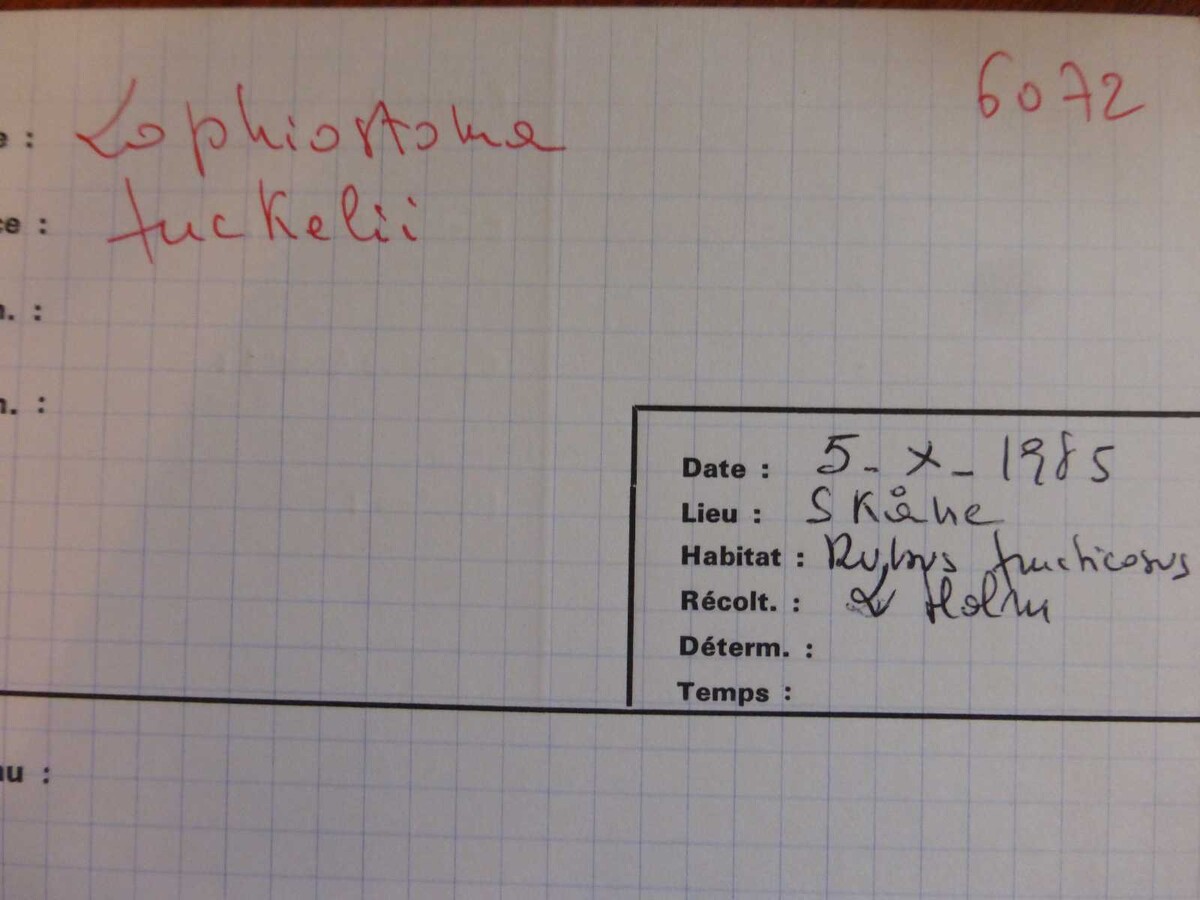 6072
e : Lophiostoma
ce : fuckelii
n. :
n. :
Date : 5 - X - 1985
Lieu : Skåne
Habitat : Rubus fruticosus
Récolt. : L Holm
Déterm. :
Temps :
nu :